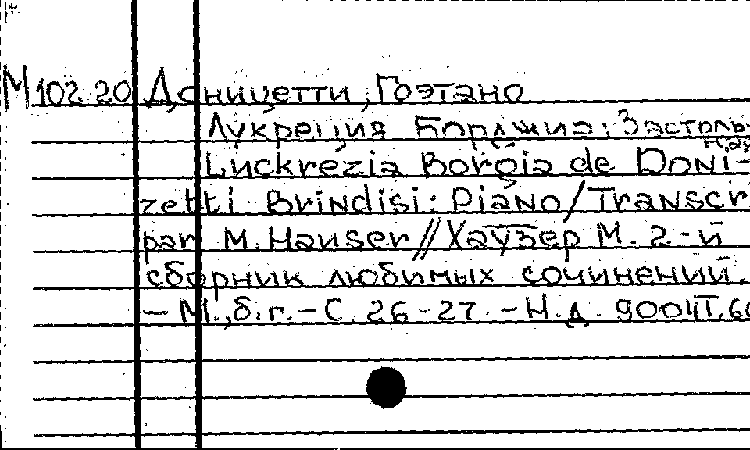 М 102.20 Доницетти, Гоэтано
Лукреция Борджиа: Застоль
Luckrezia Borgia de Doni-
zetti Brindisi: Piano/Transcr
par M. Hauser//Хаузер М. 2-й
сборник любимых сочинений.
– М., б.г. – С. 26-27. – Н.д. 9004Т.